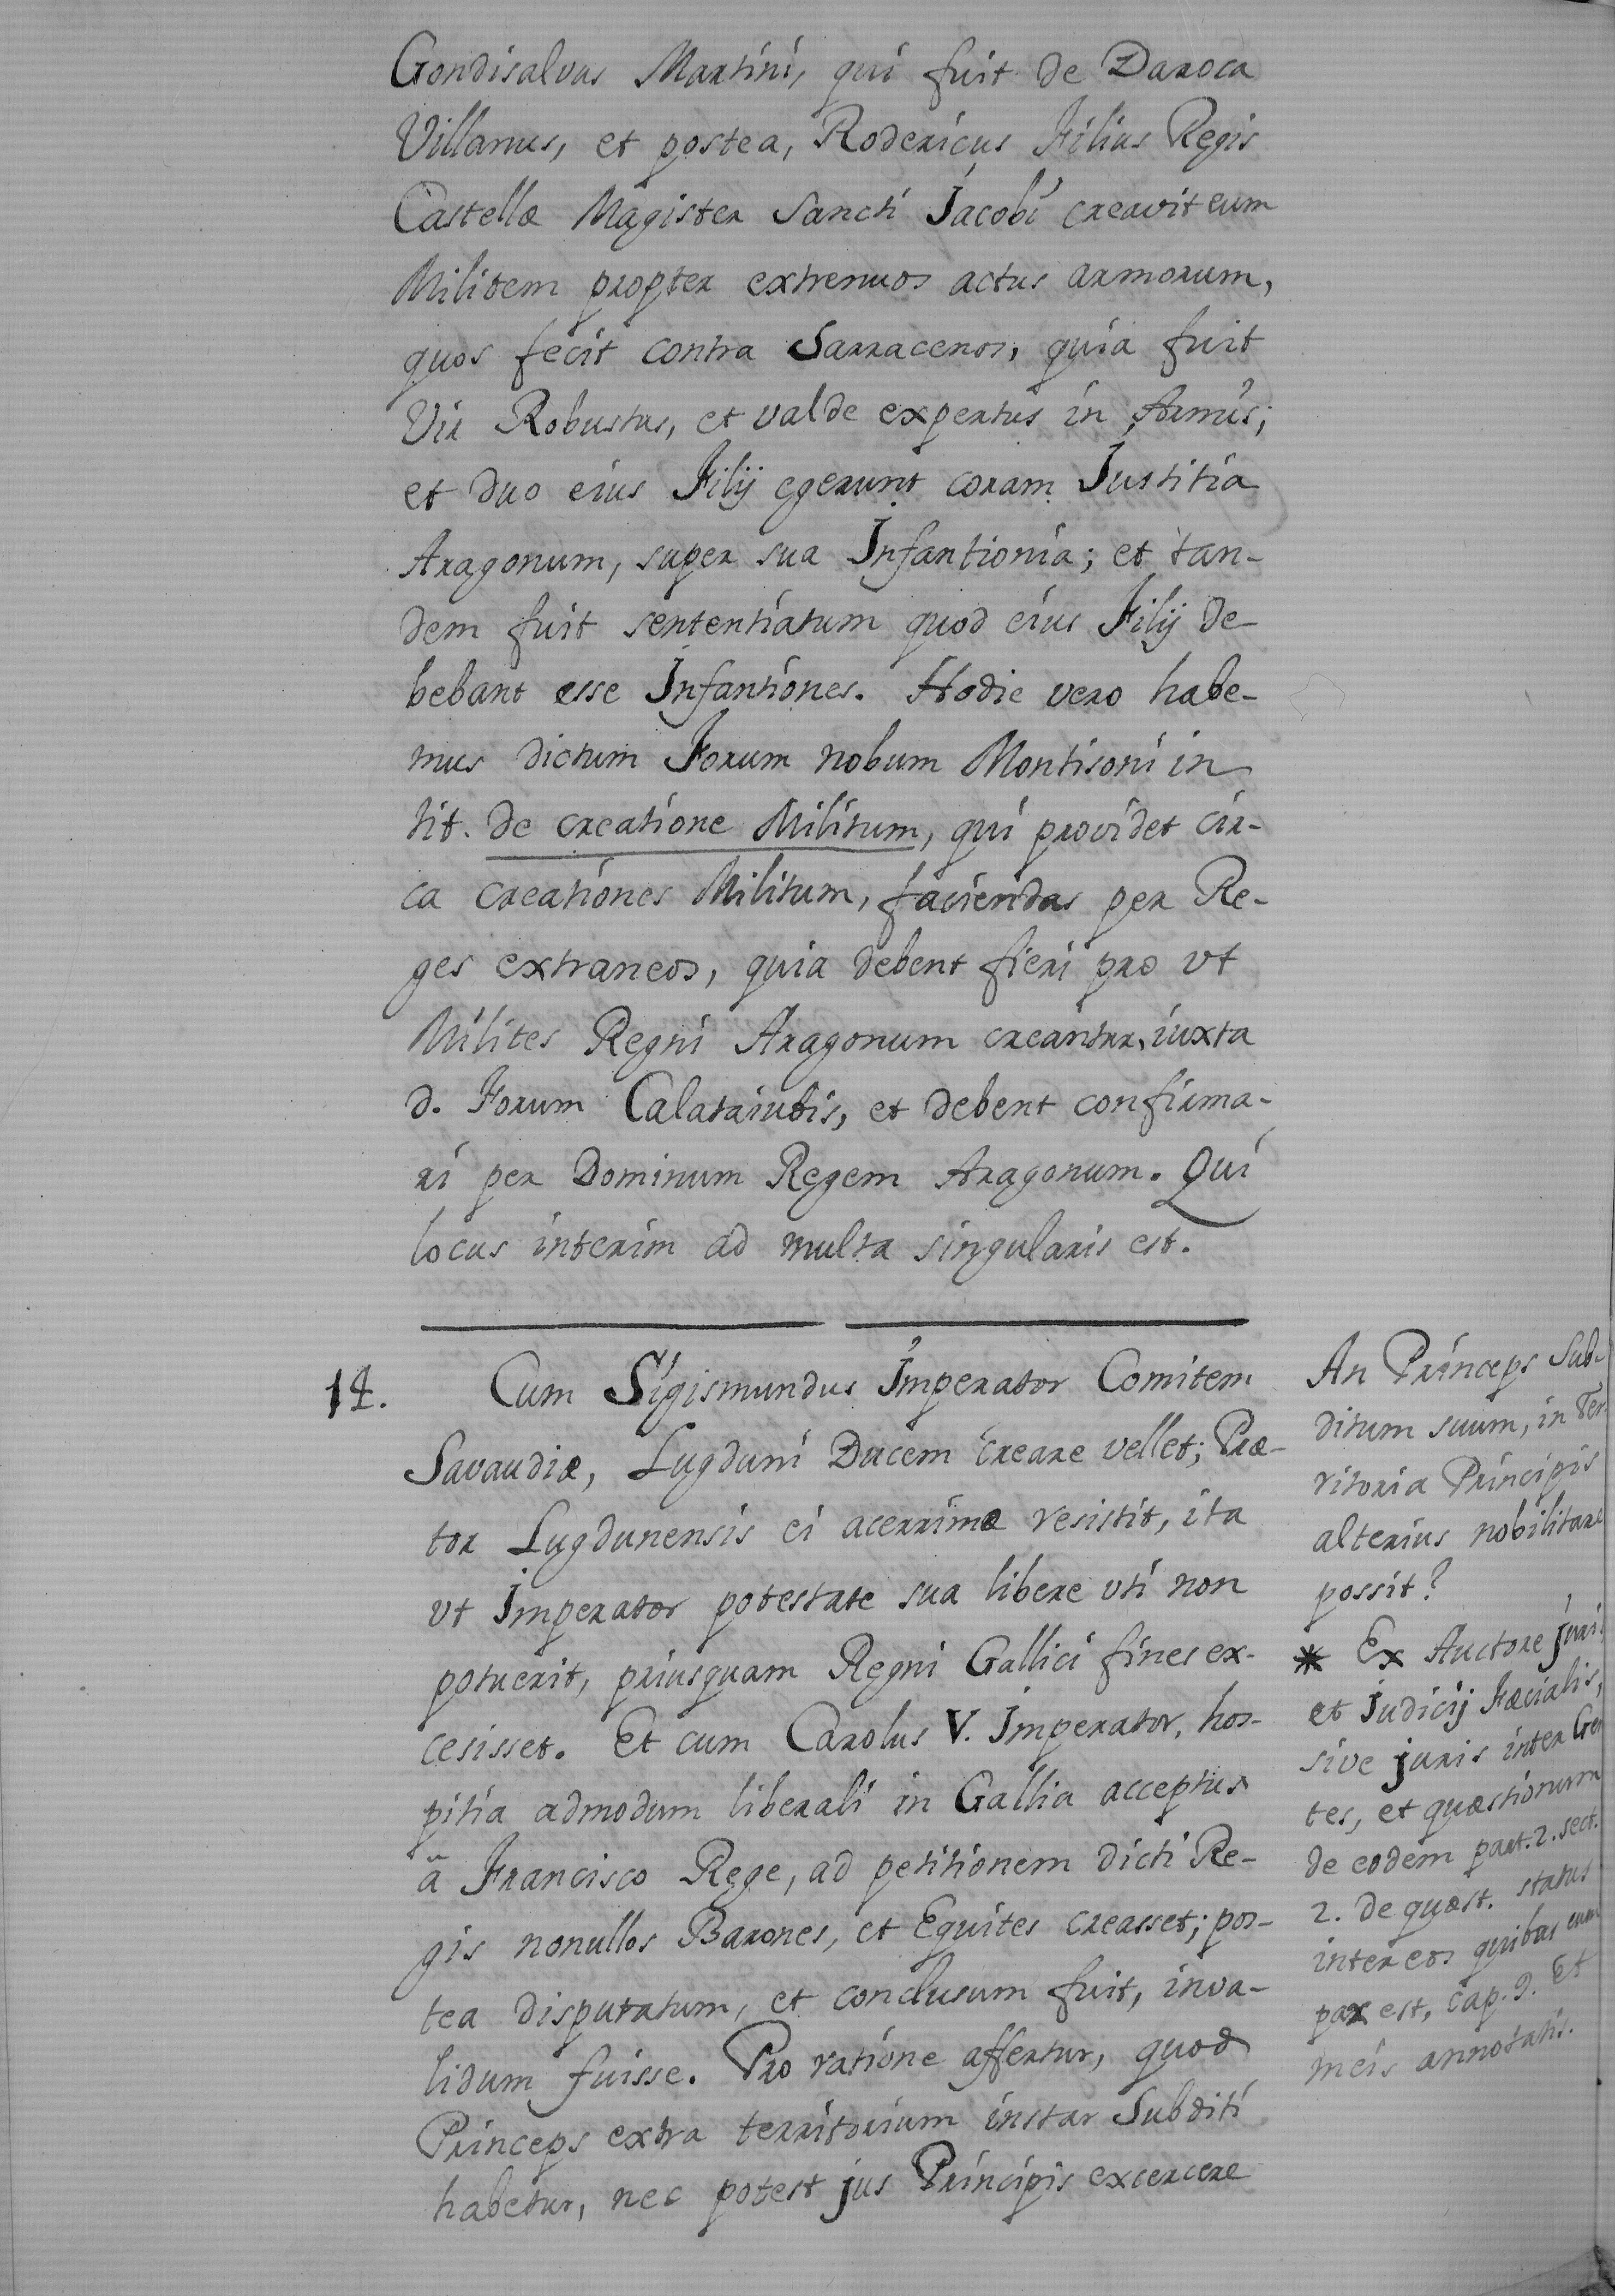 Gondisalvus Martini, qui fuit de Daroca
Villanus, et postea, Rodericus Filius Regis
Castellæ Magister Sancti Jacobi creavit eum
Militem propter extrenuos actus armorum,
quos fecit contra Sarracenos, quia fuit
Vir Robustus, et valde expertus in Armis;
et duo eius Filij egerunt coram Justitia
Aragonum, super sua Infantionia; et tan-
dem fuit sententiatum quod eius Filij de
bebant esse Infantiones. Hodie vero habe-
mus dictum Forum nobum Montisoni in
tit. de creatione Militum, qui providet cir-
ca creationes Militum, faciendas per Re-
ges extraneos, quia debent fieri pro vt
Milites Regni Aragonum creantur, iuxta
d. Forum Calataiubis, et debent confirma-
ri per Dominum Regem Aragonum. Qui
locus interim ad multa singularis est.
14. Cum Sigismundus Imperator Comitem
Savaudiæ, Lugduni Ducem creare vellet; Præ-
tor Lugdunensis ei acerrimæ resistit, ita
vt Imperator potestate sua libere vti non
potuerit, priusquam Regni Gallici fines ex-
cesisset. Et cum Carolus V. Imperator, hos-
pitia admodum liberali in Gallia acceptus
ã Francisco Rege, ad petitionem dicti Re-
gis nonullos Barones, et Equites creasset; pos-
tea disputatum, et conclusum fuit, inva-
lidum fuisse. Pro ratione affertur, quod
Princeps extra territorium instar Subditi
habetur, nec potest jus Principis excercere
An Princeps Sub-
ditum suum, in Ter-
ritoria Principis
alterius nobilitare
possit?
* Ex Auctore juris
et judicij Fæcialis,
sive juris inter Gen
tes, et quæstionum
de eodem part. 2. sect.
2. de quæst. status
inter eos quibus cum
pax est, cap. 9. Et
meis annotatis.